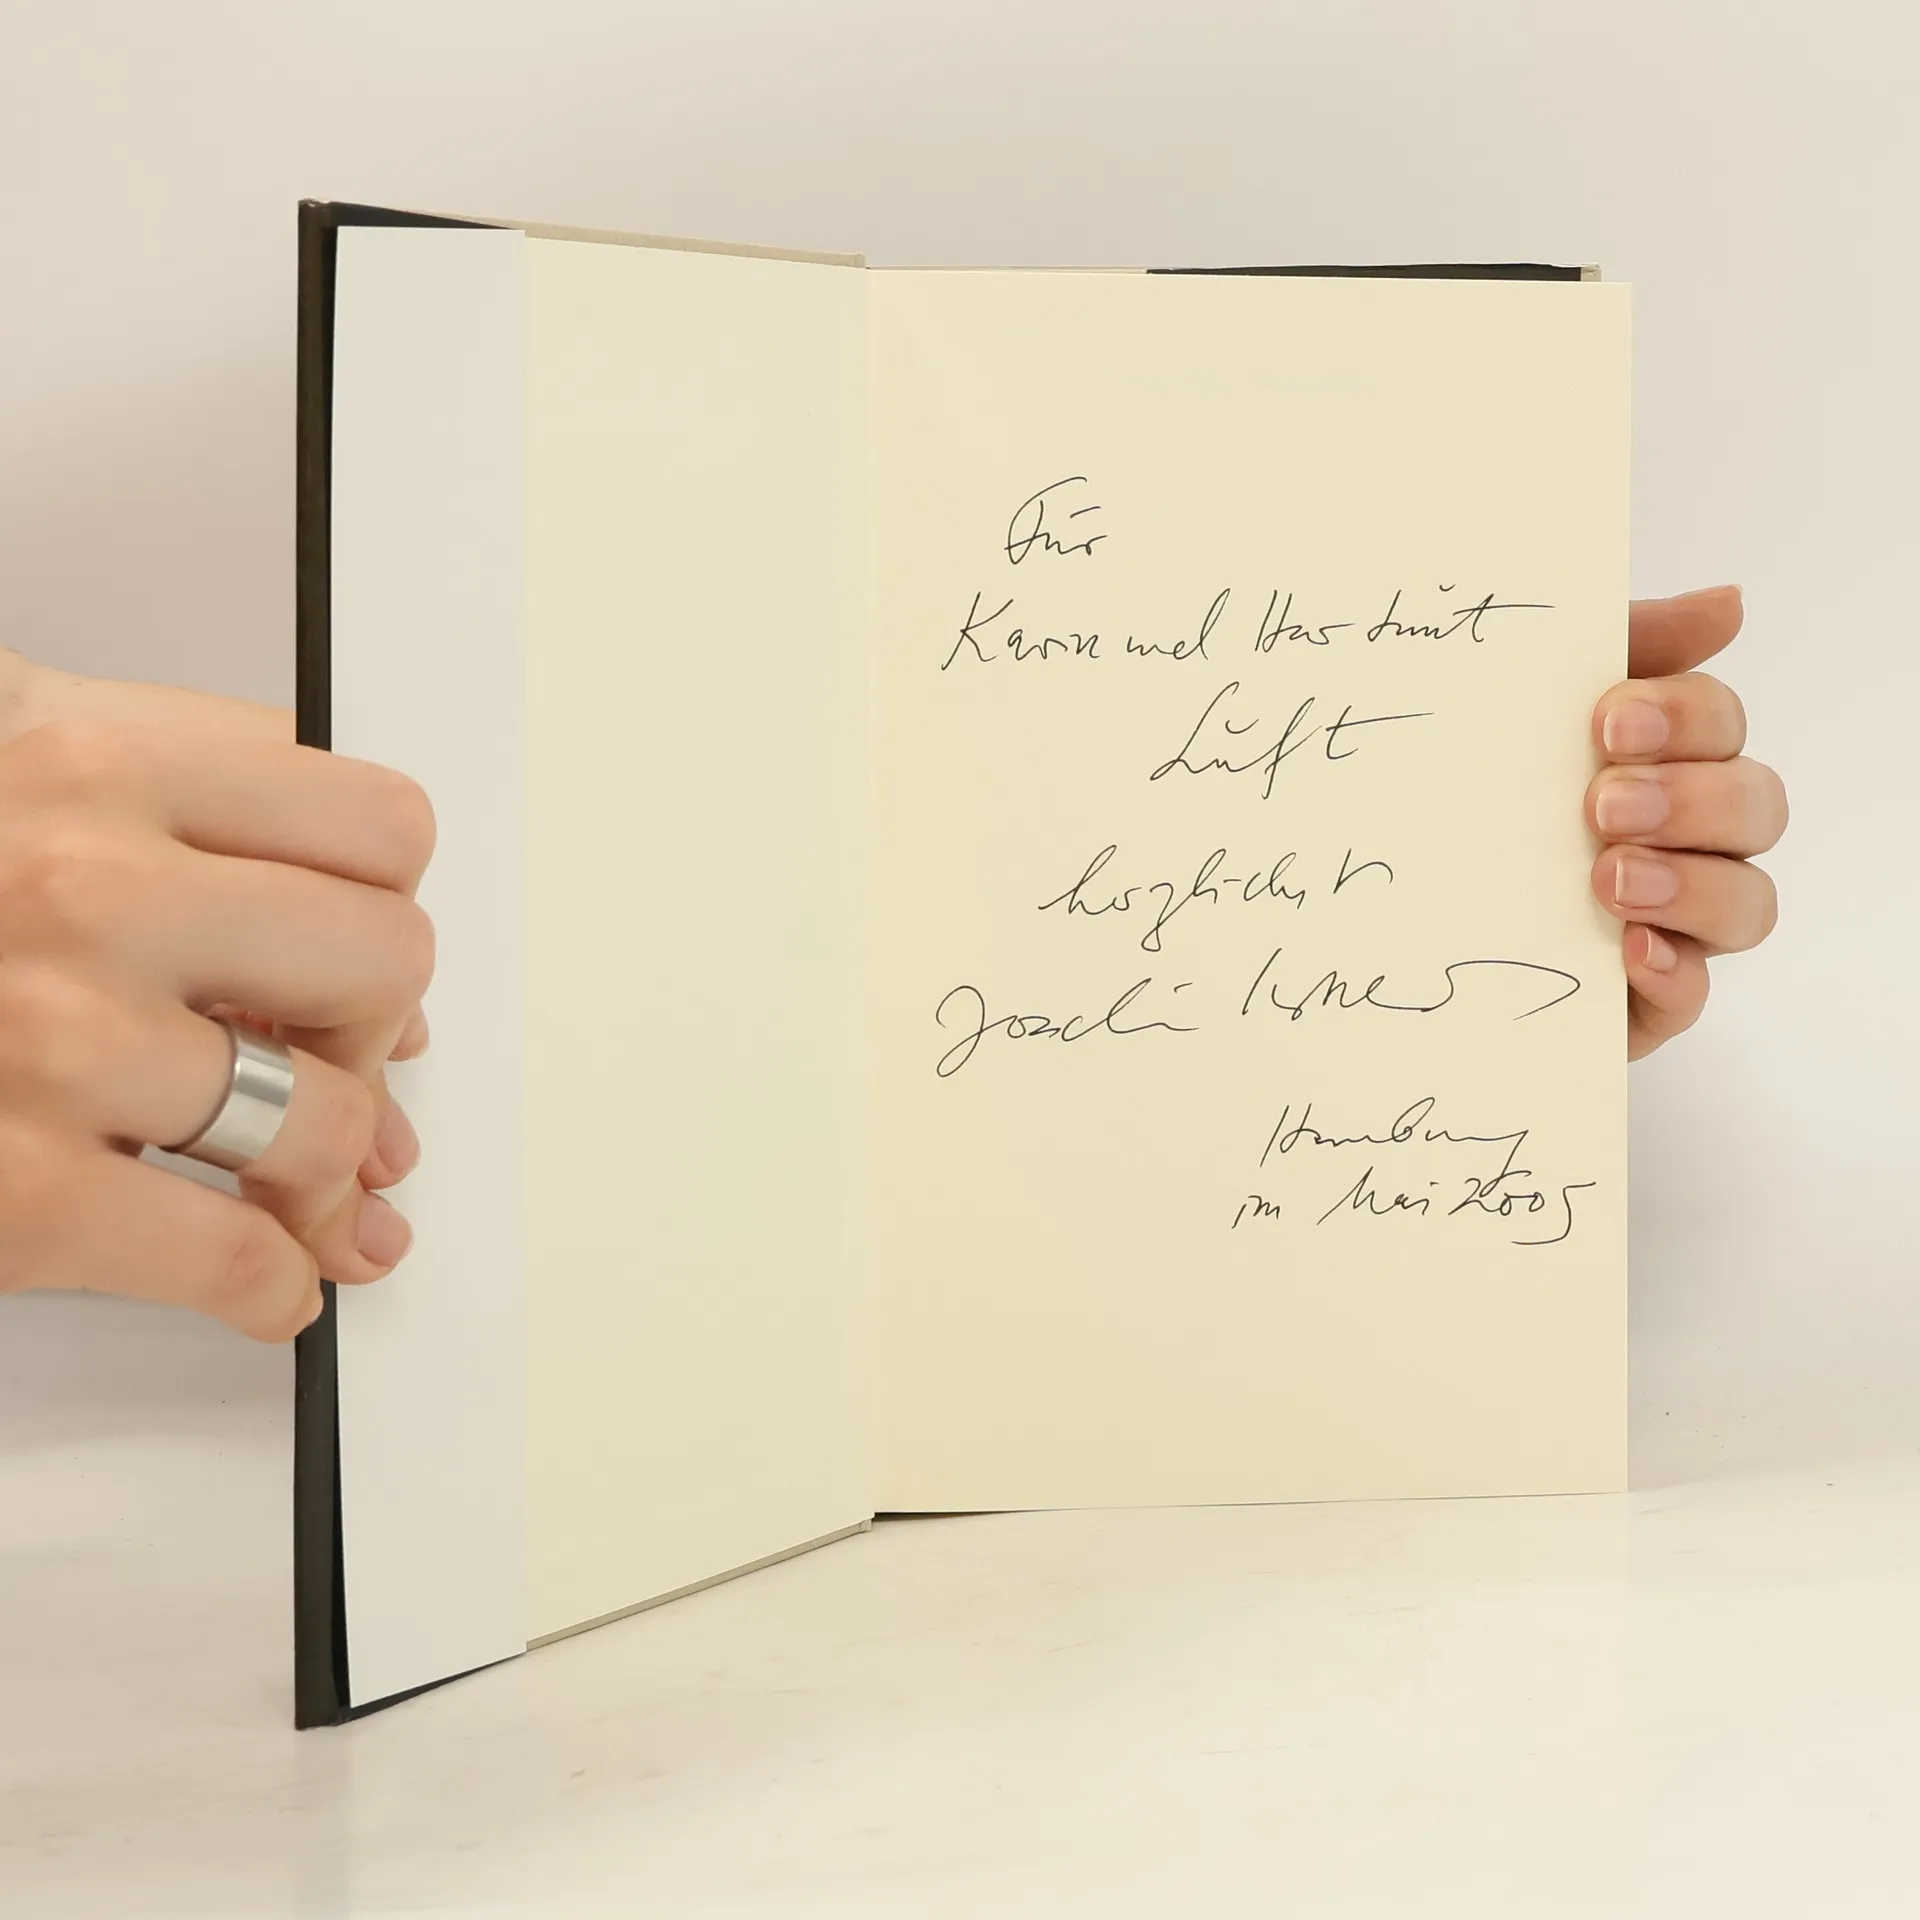 Für
Karin und Hartmut
Luft
herzlichst
Joachim
Hamburg
im Mai 2005